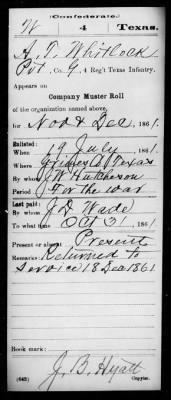 (Confederate.)
W 4 Texas.
A. T. Whitlock
Pvt, Co. G, 4 Reg't Texas Infantry.
Appears on
Company Muster Roll
of the organization named above,
for Nov & Dec, 1861.
Enlisted:
When 19 July, 1861.
Where Grimes Co Texas
By whom J. W. Hutcheson
Period For the war
Last paid:
By whom J. D. Wade
To what time Oct 31, 1861
Present or absent Present
Remarks: Returned to
Service 18 Dec 1861
Book mark:
J. B. Hyatt
(642) Copyist.